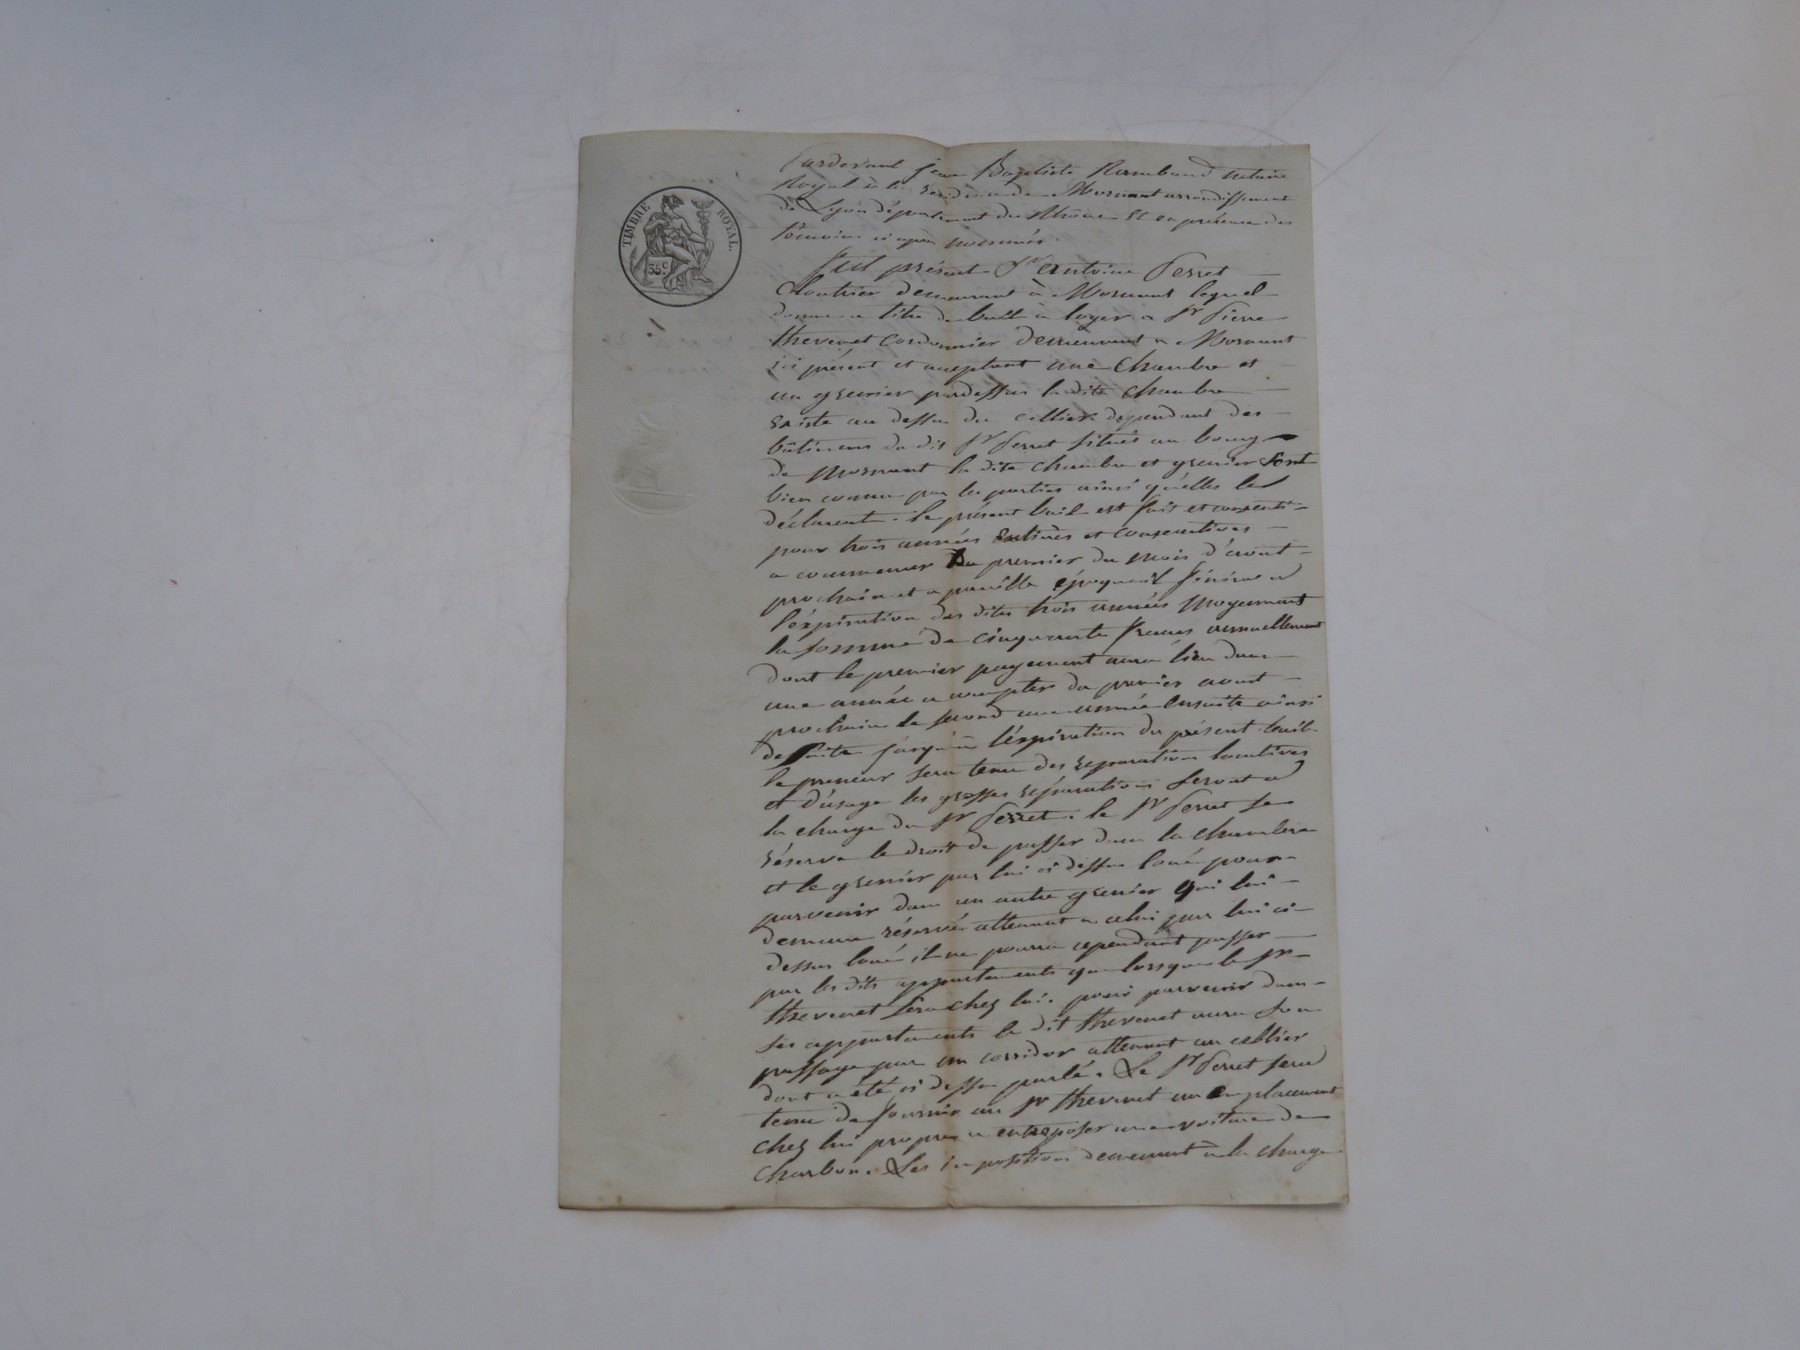 TIMBRE ROYAL.
35 c
Pardevant Jean Baptiste Rambaud notaire
Royal à la résidence de Mornant arrondissement
de Lyon département du Rhône Et en présence des
témoins ci après nommés.
fut présent Sr Antoine Perret
Cloutrier demeurant à Mornant lequel
donne a titre de bail à loyer a Sr Pierre
thevenet Cordonnier demeurant a Mornant
ici présent et acceptant une Chambre et
un grenier pardessus la dite Chambre
au dessus du cellier dependant des
bâtimens du dit Sr Perret situés au bourg
de Mornant la dite chambre et grenier sont
bien connu par les parties ainsi qu'elles le
déclarent. le présent bail est fait et consenti
pour trois années Entières et consecutives
a commencer du premier du mois d'aout
prochain et a pareille époque il finira a
l'éxpiration des dites trois années moyennant
la somme de cinquante francs annuellement
dont le premier payement aura lieu dans
une année a compter du premier aout
prochain le second une année ensuite ainsi
de suite jusqu'à l'éxpiration du présent bail.
le preneur sera tenu des reparations locatives
et d'usage les grosses réparations seront a
la charge du Sr Perret. le Sr Perret se
réserve le droit de passer dans la chambre
et le grenier par lui ci dessus loué pour
parvenir dans un autre grenier qui lui
demeure réservé attenant a celui par lui ci
dessus loué, il ne pourra cependant passer
par les dits appartements que lorsque le Sr
thevenet sera chez lui. pour parvenir dans
ses appartements le dit thevenet aura son
passage par un corridor attenant au cellier
dont a été ci dessus parlé. Le Sr Perret sera
tenu de fournir au Sr thevenet un emplacement
chez lui propre a entreposer une voiture de
charbon. Les impositions demeurent à la charge